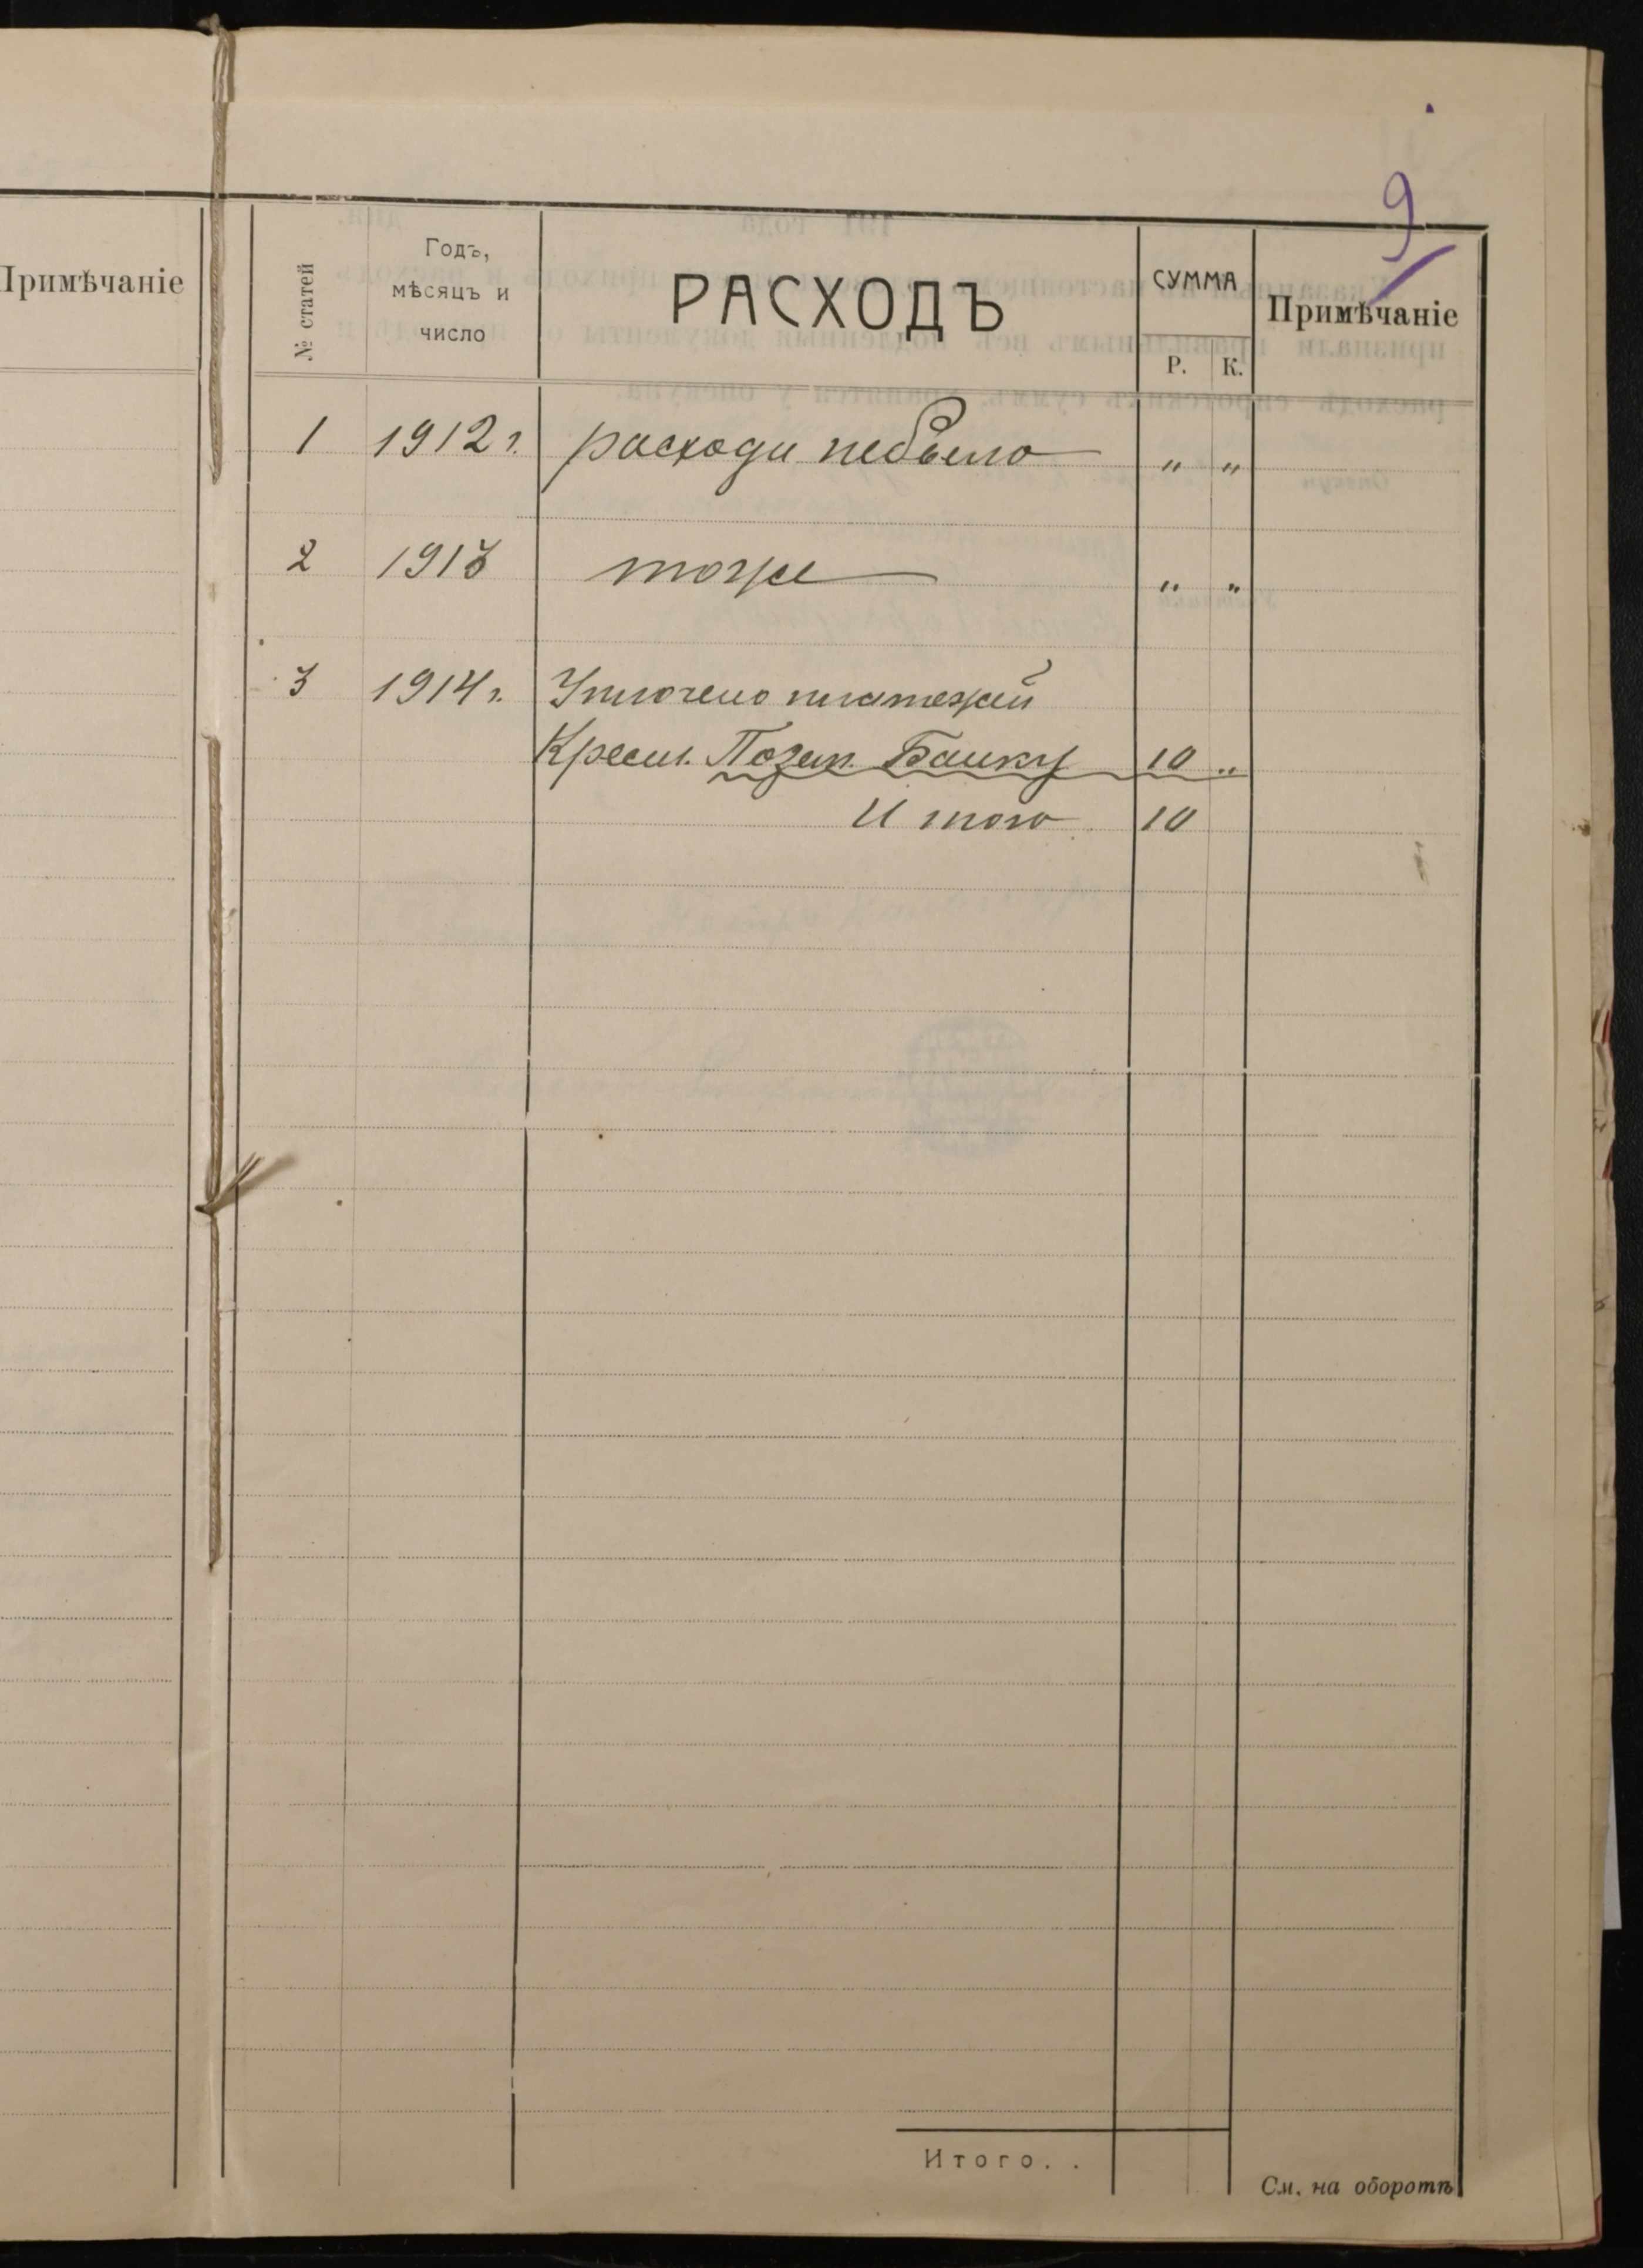 9
Примѣчаніе
№ статей
Годъ,
мѣсяцъ и
число
РАСХОДЪ
СУММА
Р. К.
Примѣчаніе
1 1912 г. расхода небыло " "
2 1913 тоже " "
3 1914 г. Уплочено платежей
Крест. Позем. Банку 10 "
И того 10
Итого. .
См. на оборотѣ